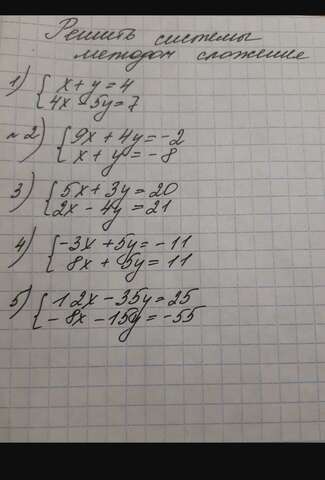 Решить системы
методом сложение
1) { x + y = 4
4x - 5y = 7
~2) { 9x + 4y = -2
x + y = -8
3) { 5x + 3y = 20
2x - 4y = 21
4) { -3x + 5y = -11
8x + 5y = 11
5) { 12x - 35y = 25
-8x - 15y = -55